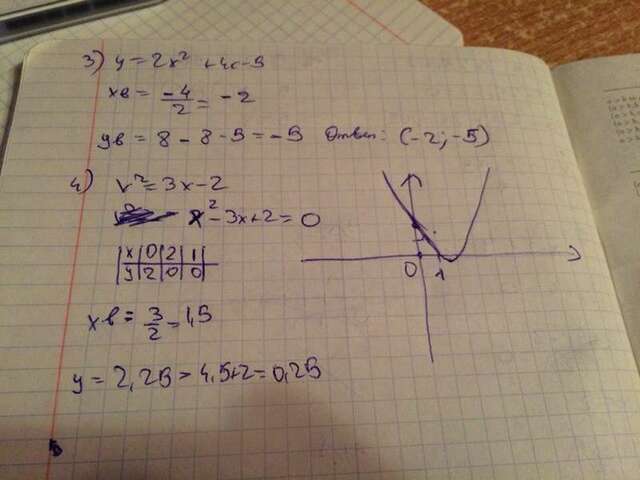 3) y = 2x² + 4x - 5
xв = -4/2 = -2
yв = 8 - 8 - 5 = -5 Ответ: (-2; -5)
4) x² = 3x - 2
x² - 3x + 2 = 0
x 0 2 1
y 2 0 0
xв = 3/2 = 1,5
y = 2,25 - 4,5 + 2 = 0,25
0 1